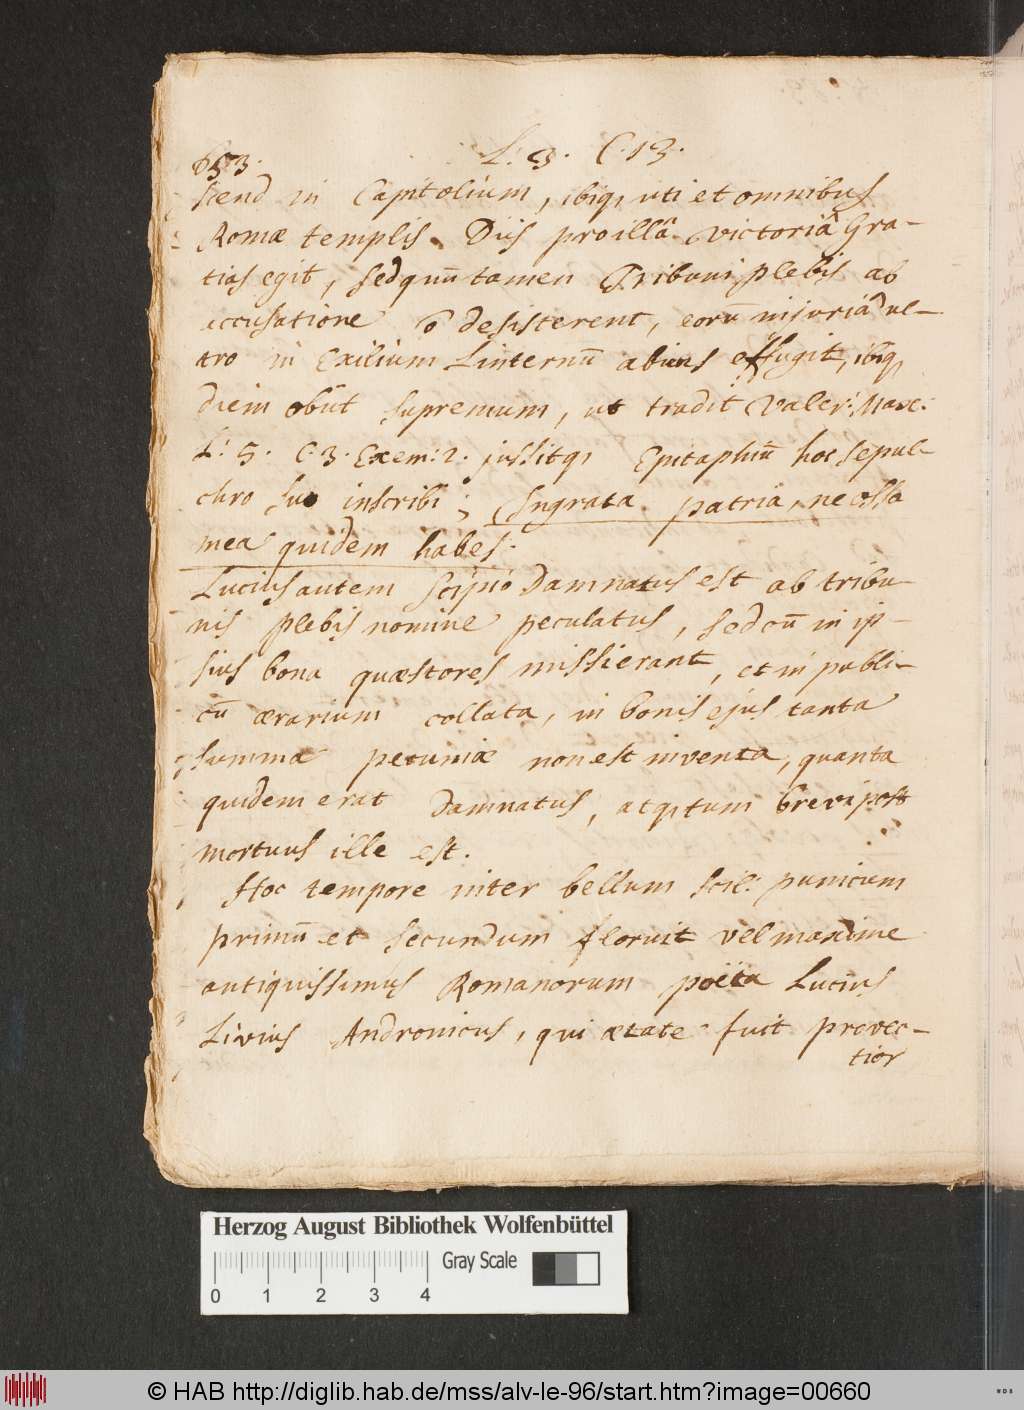 653.
L: 3. C. 13.
scend in Capitolium, ibiq, uti et omnibus
Romæ templis. Diis pro illâ victoriâ Gra-
tias egit, sed quū tamen Tribuni plebis ab
accusatione ō desisterent, eorū injuriâ ul-
tro in Exilium Linternū abiens effugit, ibiq,
diem obiit supremum, ut tradit Valer: Max:
L: 5. C. 3. Exem: 2. jussitq, Epitaphiū hoc sepul-
chro suo inscribi; Ingrata patria, ne ossa
mea quidem habes.
Lucius autem Scipio damnatus est ab tribu-
nis plebis nomine peculatus, sed cū in ip-
sius bona quæstores missi erant, et in publi-
cū ærarium collata, in bonis ejus tanta
summa pecuniæ non est inventa, quanta
quidem erat damnatus, atq, tum brevi post
mortuus ille est.
Hoc tempore inter bellum scil: punicum
primū et secundum floruit vel maxime
antiquissimus Romanorum poëta Lucius
Livius Andronicus, qui ætate fuit provec-
tior
Herzog August Bibliothek Wolfenbüttel
Gray Scale
0 1 2 3 4
© HAB http://diglib.hab.de/mss/alv-le-96/start.htm?image=00660